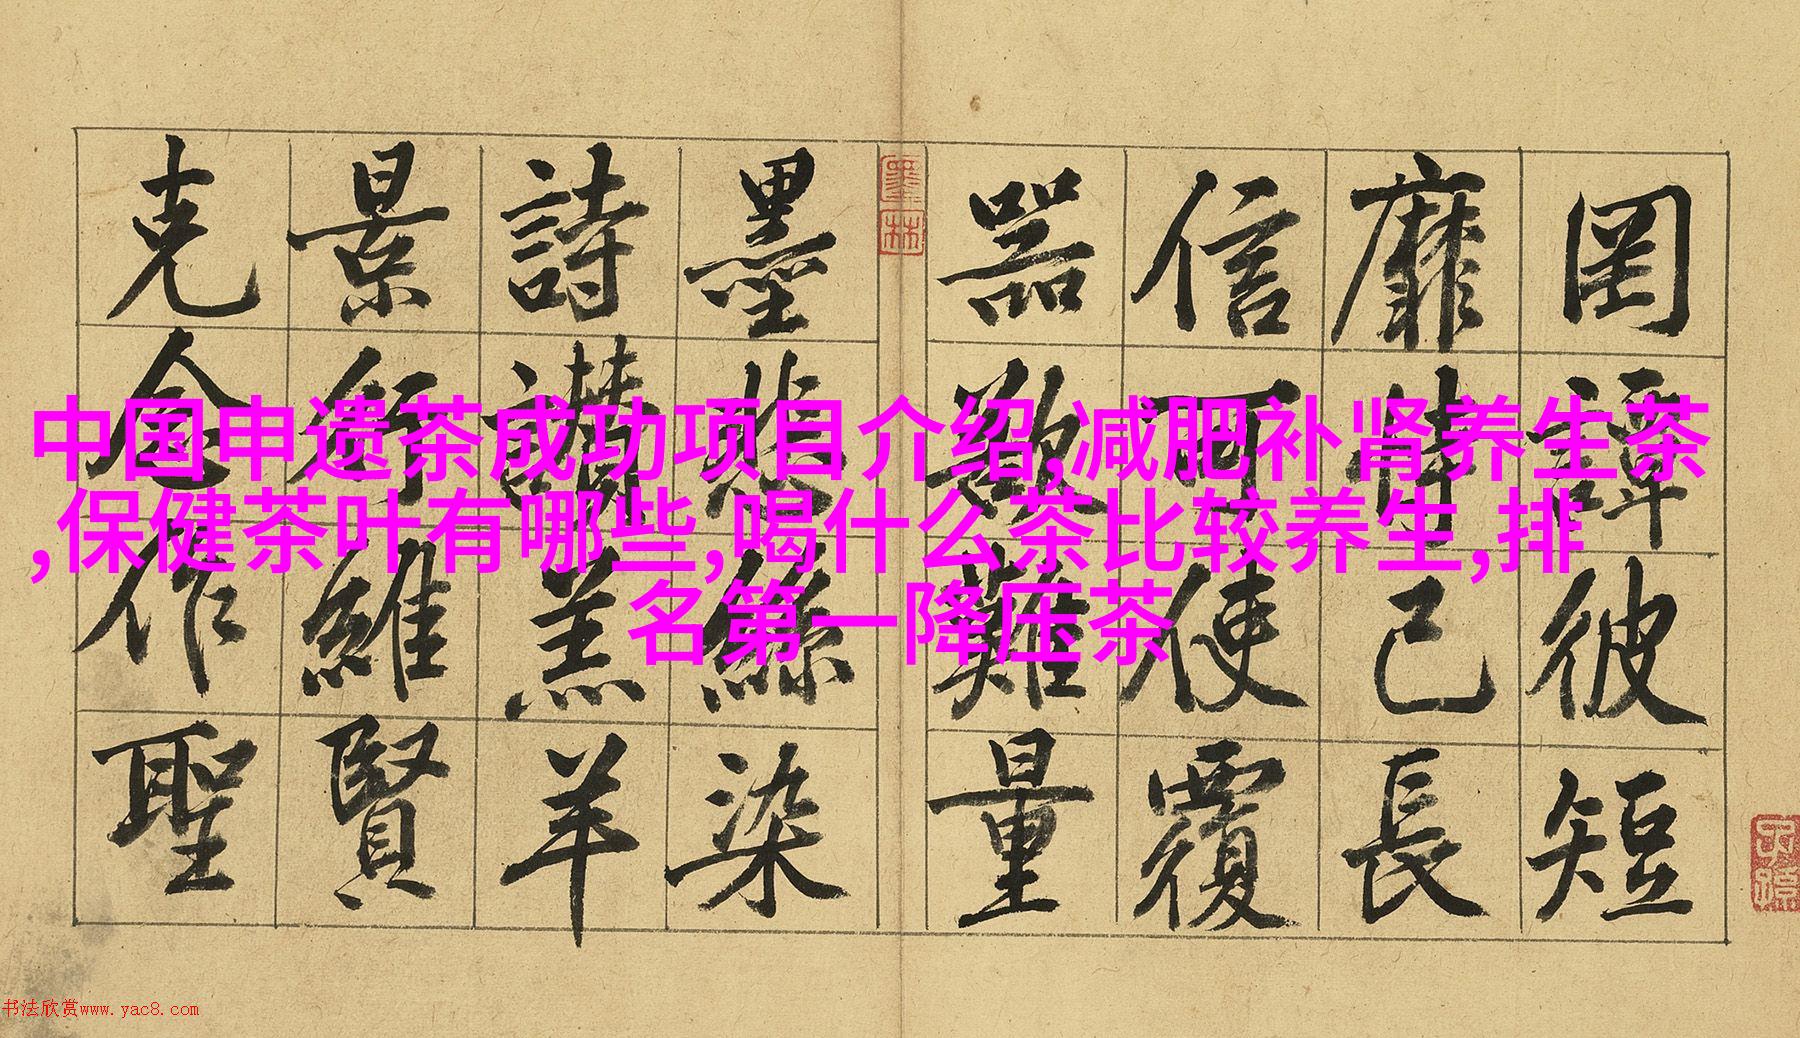 中国申遗茶成功项目介绍,减肥补肾养生茶
,保健茶叶有哪些,喝什么茶比较养生,排
名第一降压茶
罔譚彼短
靡恃己長
信可使覆
器欲難量
墨悲絲染
詩讚羔羊
景行維賢
克念作聖
墨林
书法欣赏www.yac8.com